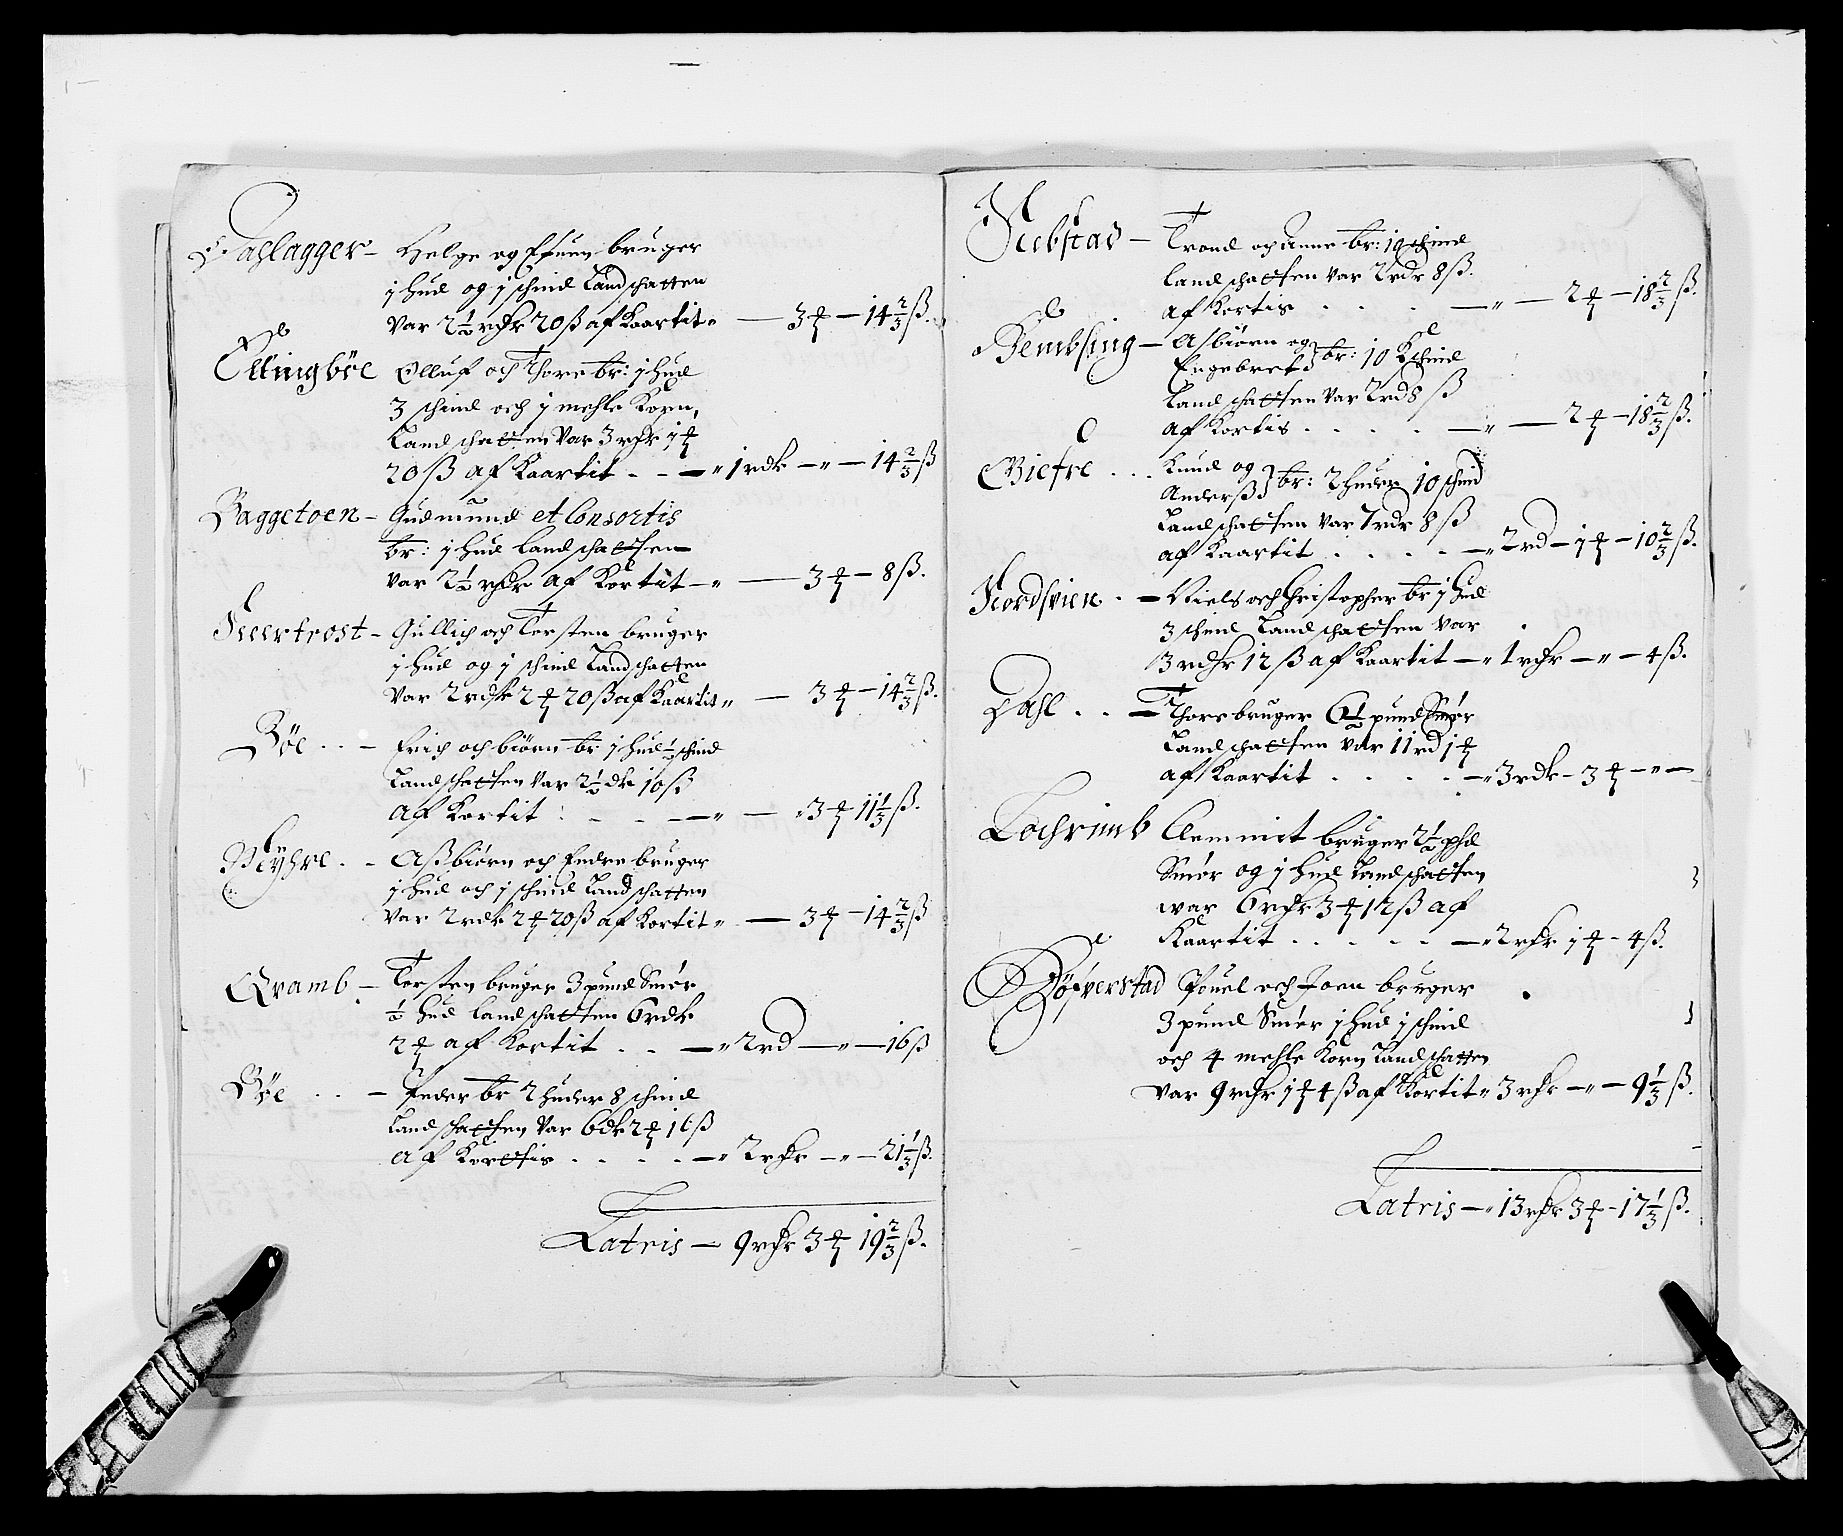 Dahlagger – Helge og Efuen bruger
1 hud og 1 schind Landschatten
var 2½ rdr 20 ß af Kaartit „ — 3 ₰ — 14⅔ ß.
Ellingböe Olluf och Thore br: 1 hud
3 schind och 1 mehle Korn,
Landschatten var 3 rdr 1 ₰
20 ß af Kaartit . . — „ 1 rdr — „ — 14⅔ ß
Baggetoen – Gudmund et Consortis
br: 1 hud Landschatten
var 2½ rdr af Kortit — „ — 3 ₰ — 8 ß.
Gullich och Tersten bruger
1 hud og 1 schind Landschatten
var 2 rdr 2 ₰ 20 ß af Kaartit „ — 3 ₰ — 14⅔ ß.
Böe . . – Erich och biörn br 1 hud ½ schind
Landschatten var 2½ dr 10 ß
af Kortit . . . — „ — 3 ₰ 11⅓ ß.
Myhre . . Aßbiörn och Endre bruger
1 hud och 1 schind Landschatten
var 2 rdr 2 ₰ 20 ß af Kortit „ — 3 ₰ — 14⅔ ß
Qvamb – Tersten bruger 3 pund Smör
½ hud Landschatten 6 rdr
2 ₰ af Kortit . . — „ 2 rd — „ — 16 ß
Böe . . – Peder br 2 huder 8 schind
Landschatten var 6 dr 2 ₰ 16 ß
af Kortis . . . . — „ 2 rdr — „ — 21⅓ ß.
Latris — 9 rdr 3 ₰ 19⅔ ß.
Trond och Anne br: 10 schind
Landschatten var 2 rdr 8 ß.
af Kortis . . . . — „ — 2 ₰ — 18⅔ ß.
Rembsing – Asbiörn og
Engebret br: 10 Kschind
Landschatten var 2 rd 8 ß
af Kortis . . . . — „ — 2 ₰ — 18⅔ ß.
Giefre . . . Knud og
Anderß br: 2 huder 10 schind
Landschatten var 7 rdr 8 ß
af Kaartit . . . . — „ 2 rd — 1 ₰ — 10⅔ ß.
Nordsvien . – Niels och Christopher br 1 hud
3 schind Landschatten var
3 rdr 12 ß af Kaartit — „ 1 rdr — „ — 4 ß.
Dahl . . – Thore bruger 6½ pund Smör
Landschatten var 11 rd 1 ₰
af Kaartit . . . . — „ 3 rdr — 3 ₰ — „ —
Lochrimb Clemmit bruger 2½ phd
Smör og 1 hud Landschatten
war 6 rdr 3 ₰ 12 ß af
Kaartit . . . . . — „ 2 rdr 1 ₰ — 4 ß.
Röfverstad Pouel och Joen bruger
3 pund Smör 1 hud 1 schind
och 4 mehle Korn Landschatten
var 9 rdr 1 ₰ 4 ß af Kortit „ 3 rdr — „ — 9⅓ ß.
Latris — „ 13 rdr 3 ₰ — 17⅓ ß.